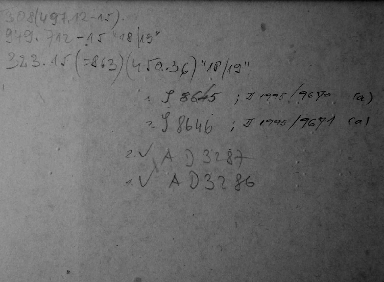 308(491.12-15).
949.712-15 "18/19"
323.15(=863)(450.36)"18/19"
1. S 8645 ; II 1995/9670 (a)
2. S 8646 ; II 1995/9671 (a)
2. √ A D 3287
1. √ A D 3286